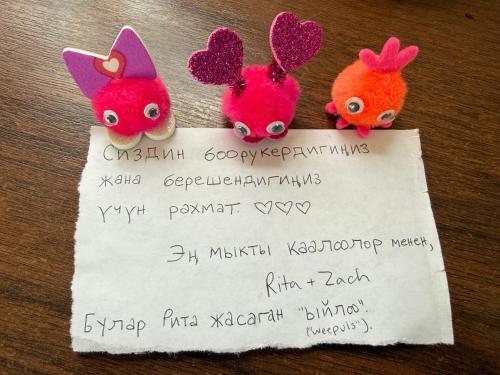 Сиздин боорукердигиңиз
жана берешендигиңиз
үчүн рахмат. ♡♡♡
Эң мыкты каалоолор менен,
Rita + Zach
Булар Рита жасаган "ыйлоо".
("weepuls").